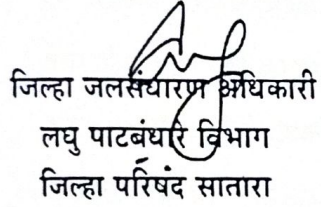 जिल्हा जलसंधारण अधिकारी
लघु पाटबंधारे विभाग
जिल्हा परिषद सातारा